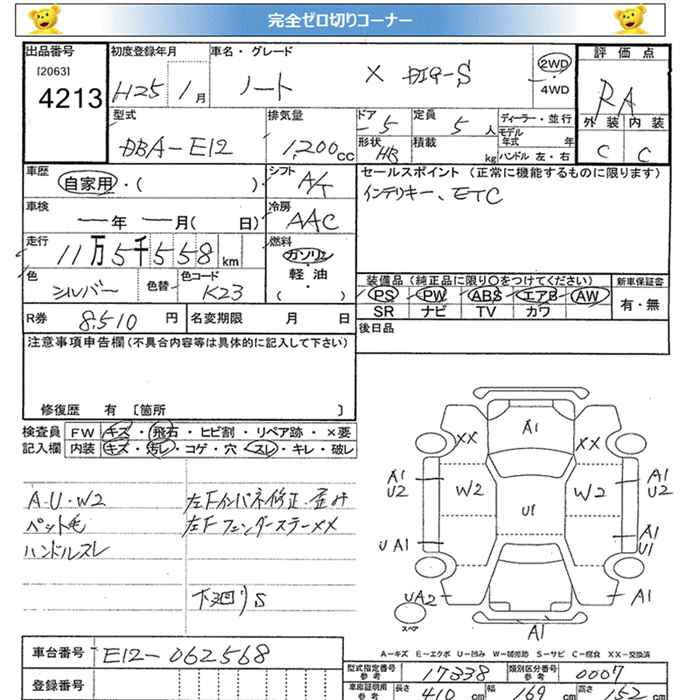 完全ゼロ切りコーナー
出品番号 初度登録年月 車名・グレード 評価点
[2063]
4213 H25 1月 ノート X DIG-S 2WD ・ 4WD RA
型式 排気量 ドア 5 定員 5人 ディーラー・並行 外装 内装
DBA-E12 1,200CC 形状 HB 積載 kg モデル年式 年 C C
ハンドル 左・右
車歴 シフト セールスポイント (正常に機能するものに限ります)
自家用・( ) A/T インテリキー、ETC
車検 冷房
ー年 ー月( 日) AAC
走行 燃料
11万5千558km ガソリン
軽油
( ・ )
色 シルバー 色替 色コード K23
装備品 (純正品に限り〇をつけてください) 新車保証書
PS PW ABS エアB AW 有・無
SR ナビ TV カワ
R券 8,510円 名変期限 月 日
後日品
注意事項申告欄(不具合内容等は具体的に記入して下さい)
修復歴 有 [箇所 ]
検査員 FW キズ・飛石・ヒビ割・リペア跡・×要
記入欄 内装 キズ・汚レ・コゲ・穴・スレ・キレ・破レ
A-U・W2 左Fインパネ修正・歪み
ペット毛 左FフェンダーステーXX
ハンドルスレ
下廻りS
A1
XX XX
A1 A1
U2 W2 W2 U2
U1
U A1 A1
U1
UA2 A1
スペア
A1
A-キズ E-エクボ U-凹み W-補修跡 S-サビ C-腐食 XX-交換済
車台番号 E12-062568
型式指定番号 参考 17338 類別区分番号 参考 0007
登録番号
車庫証明用 参考 長さ 410cm 幅 169cm 高さ 152cm